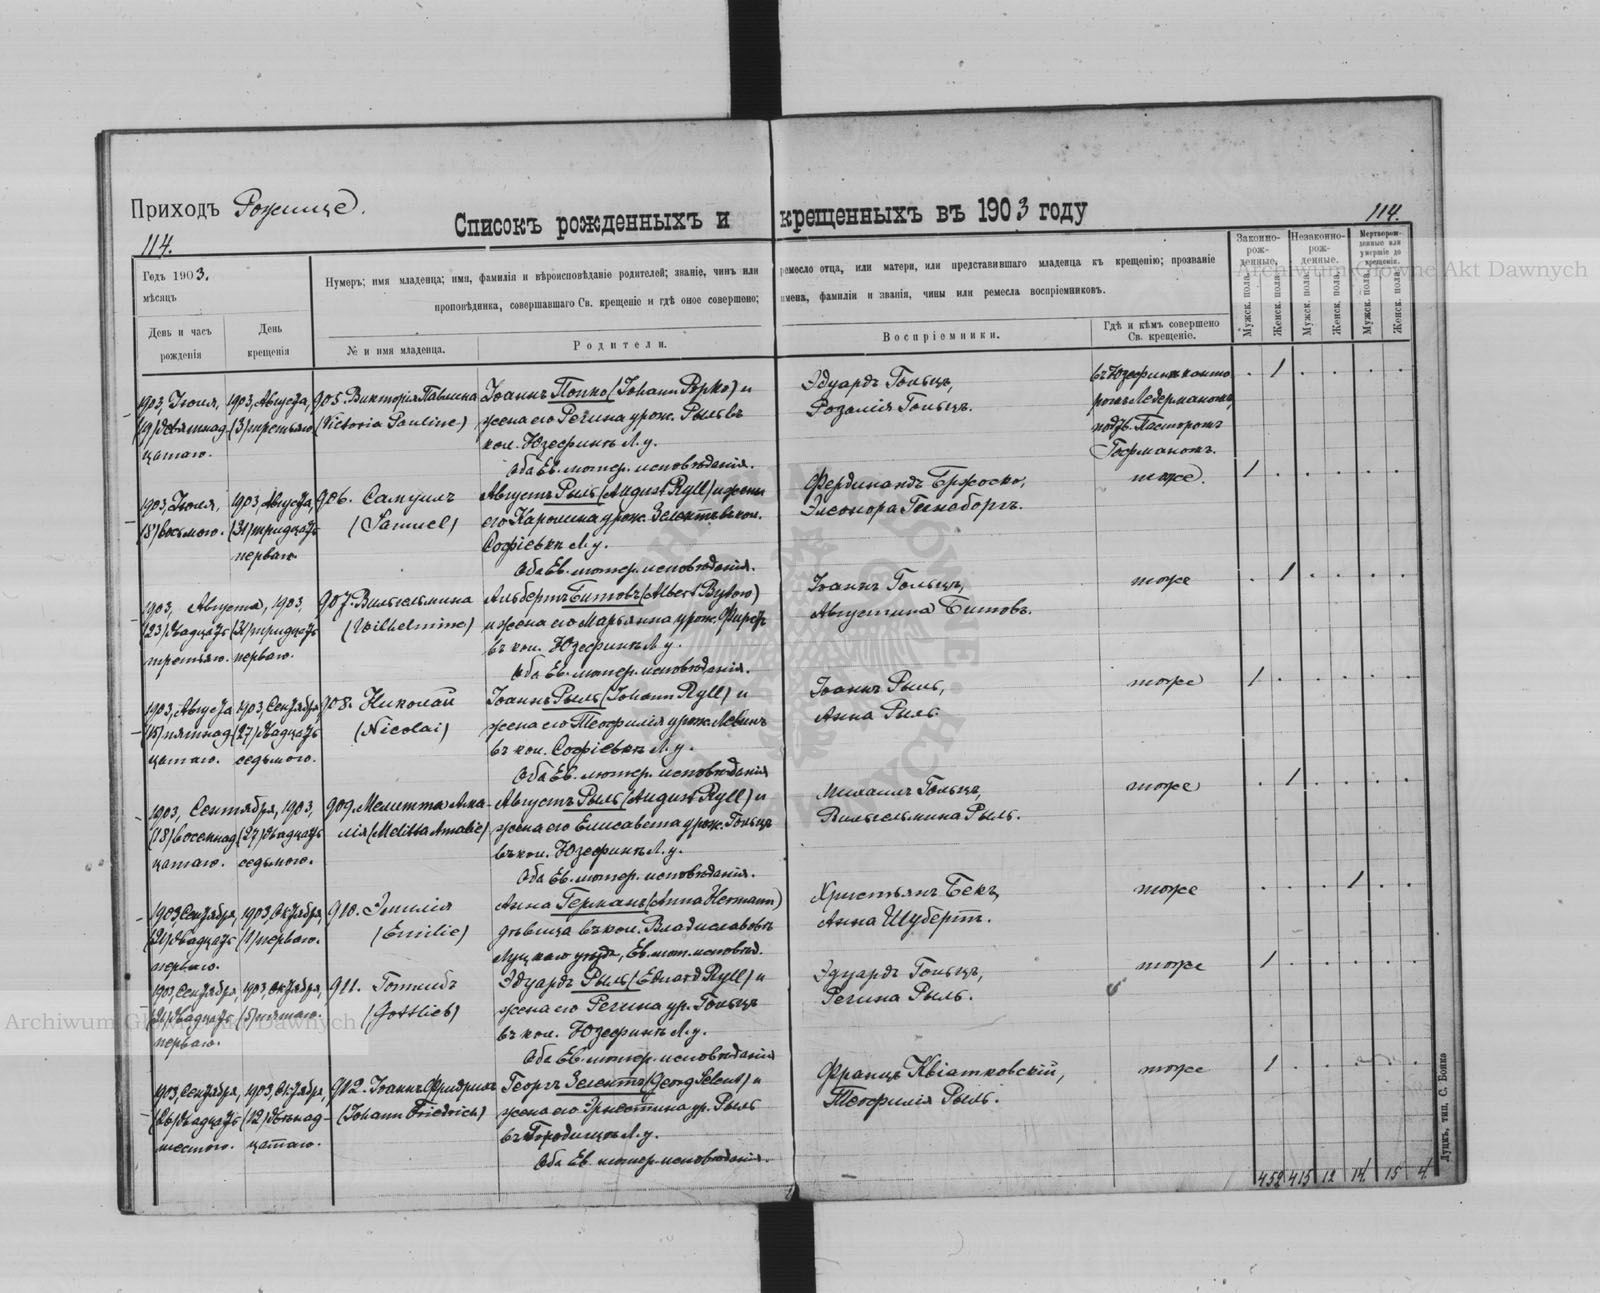 Приходъ Рожище.
Списокъ рожденныхъ и крещенныхъ въ 1903 году
114.
114.
Годъ 1903.
мѣсяцъ
День и часъ рожденія
День крещенія
Нумеръ; имя младенца; имя, фамилія и вѣроисповѣданіе родителей; званіе, чинъ или ремесло отца, или матери, или представившаго младенца къ крещенію; прозваніе
проповѣдника, совершавшаго Св. крещеніе и гдѣ оное совершено; имена, фамиліи и званія, чины или ремесла воспріемниковъ.
№ и имя младенца.
Родители.
Воспріемники.
Гдѣ и кѣмъ совершено Св. крещеніе.
Законно-рож-денные.
Незаконно-рож-денные.
Мертворож-денные или умершіе до крещенія.
Мужск. пола.
Женск. пола.
Мужск. пола.
Женск. пола.
Мужск. пола.
Женск. пола.
1903, Іюля,
(19) девятнад-
цатаго.
1903, Августа,
(3) третьяго
905. Викторія Павлина
(Victoria Pauline)
Іоаннъ Попко (Johann Popko) и
жена его Регина урож. Рыль въ
кол. Юзефинъ Л. у.
Оба Ев. лютер. исповѣданія.
Эдуардъ Гольцъ,
Розалія Гольцъ.
въ Юзефинѣ канто
ромъ Ледерманомъ,
подтв. Пасторомъ
1
1903, Іюля,
(8) восьмого.
1903, Августа,
(31) тридцать
перваго.
906. Самуилъ
(Samuel)
Августъ Рыль (August Ryll) и жена
его Каролина урож. Зелентъ въ кол.
Софіевкѣ Л. у.
Оба Ев. лютер. исповѣданія.
Фердинандъ Бржоско,
Элеонора
тоже.
1
1903, Августа, 1903,
(23) двадцать
третьяго.
(31) тридцать
перваго.
907. Вильгельмина
(Wilhelmine)
Альбертъ Битовъ (Albert Bytow)
и жена его Марьянна урож.
въ кол. Юзефинъ Л. у.
Оба Ев. лютер. исповѣданія.
Іоаннъ Гольцъ,
Августина Битовъ.
тоже
1
1903, Августа
(15) пятнад-
цатаго.
1903, Сентября,
(27) двадцать
седьмого.
908. Николай
(Nicolai)
Іоаннъ Рыль (Johann Ryll) и
жена его Теофилія урож. Левинъ
въ кол. Софіевкѣ Л. у.
Оба Ев. лютер. исповѣданія
Іоаннъ Рыль,
Анна Рыль.
тоже
1
1903, Сентября, 1903,
(18) восемнад
цатаго.
(27) двадцать
седьмого.
909. Мелитта Ама-
лія (Melitta Amalie)
Августъ Рыль (August Ryll) и
жена его Елисавета урож. Гольцъ
въ кол. Юзефинъ Л. у.
Оба Ев. лютер. исповѣданія.
Михаилъ Гольцъ,
Вильгельмина Рыль.
тоже
1
1903, Сентября,
(21) двадцать
перваго.
1903, Октября,
(1) перваго.
910. Эмилія
(Emilie)
Анна Германъ (Anna Hermann)
дѣвица въ кол. Владиславовкѣ
Луцкаго уѣзда, Ев. лют. исповѣд.
Христьянъ Бекъ,
Анна Шубертъ.
тоже
1
1903, Сентября,
(21) двадцать
перваго.
1903, Октября,
(5) пятаго.
911. Готлибъ
(Gottlieb)
Эдуардъ Рыль (Eduard Ryll) и
жена его Регина ур. Гольцъ
въ кол. Юзефинъ Л. у.
Оба Ев. лютер. исповѣданія
Эдуардъ Гольцъ,
Регина Рыль.
тоже
1
1903, Сентября,
(26) двадцать
шестого.
1903, Октября,
(12) двѣнад-
цатаго.
912. Іоаннъ Фридрихъ
(Johann Friedrich)
Георгъ Зелентъ (Georg Selent) и
жена его Эрнестина ур. Рыль
въ Городищѣ Л. у.
Оба Ев. лютер. исповѣданія.
Францъ Квіатковскій,
Теофилія Рыль.
тоже
1
452 415 12 14 15 4
Луцкъ, тип. С. Бонко
Archiwum Główne Akt Dawnych
Archiwum Główne Akt Dawnych